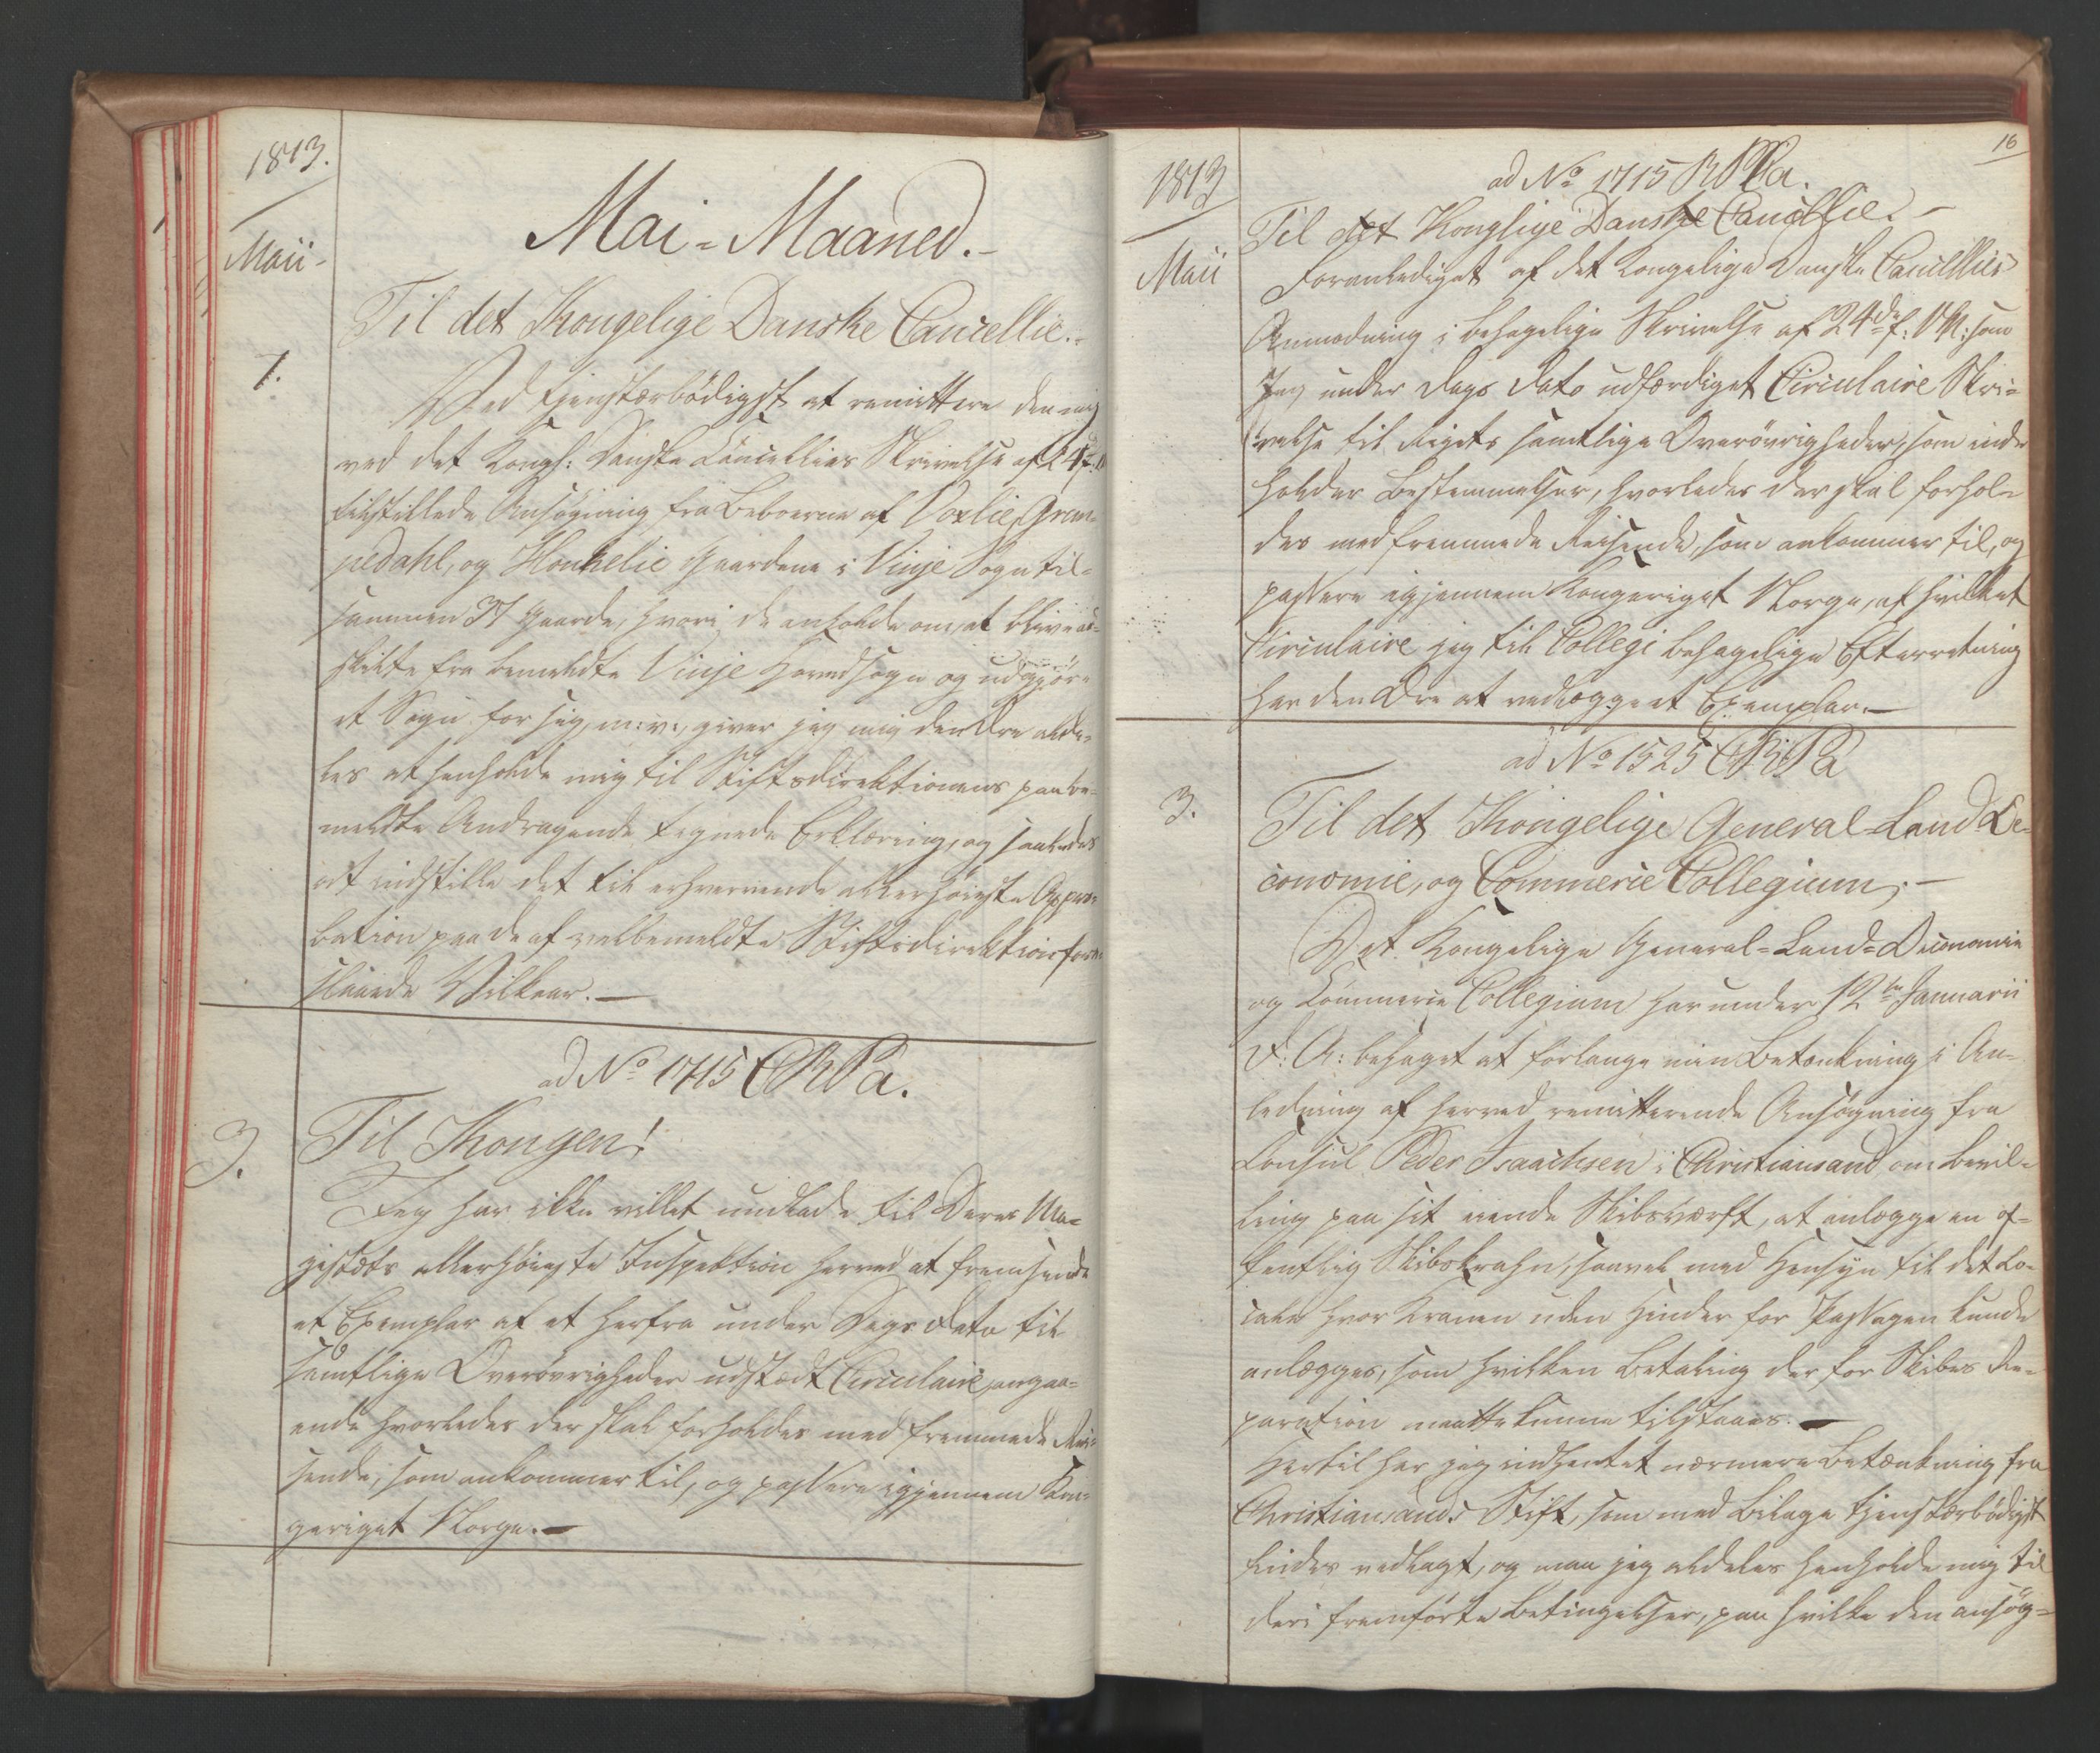 1813.
Maii-
Mai-Maaned.-
Til det Kongelige Danske Cancellie.-
1.
Ved tjenstærbødigst at remittere den mig
ved det Kongl: Danske Cancellies Skrivelse af 24 f:
tilstillede Ansøgning fra Beboerne af Voxlie, Grun-
gedahl, og Houkelie Gaardene i Vinje Sogn til-
sammen 37 Gaarde, hvori de anholde om, at blive ad-
skilte fra bemeldte Vinje Hovedsogn og udgjøre
et Sogn for sig, m:v:, giver jeg mig den Ære alde-
les at henholde mig til Stiftsdirektionens paa be-
meldte Andragende tegnede Erklæring, og saaledes
at indstille det til erhvervende allerhøieste Appro-
bation paa de af velbemeldte Stiftsdirektion fore-
slaaede Vilkaar.-
ad No 1715 CRPa.
3.
Til Kongen!
Jeg har ikke villet undlade til Deres Ma-
jestæts allerhøieste Inspektion herved at fremsende
et Exemplar af et herfra under Dags Dato til
samtlige Overøvrigheder udstædt Circulaire, angaa-
ende hvorledes der skal forholdes med fremmede Rei-
sende, som ankommer til, og passere igjennem Kon-
geriget Norge.-
16
1813
Maii
ad No 1715 RPPa.
Til det Konglige Danske Cancellie.-
Foranlediget af det Kongelige Danske Cancellies
Anmodning i behagelige Skrivelse af 24de f: M: har
Jeg under Dags Dato udfærdiget Circulaire Skri-
velse til Rigets samtlige Overøvrigheder, som inde
holder Bestemmelser, hvorledes der skal forhol-
des med fremmede Reisende, som ankommer til, og
passere igjennem Kongeriget Norge, af hvilket
Circulaire jeg til Collegi behagelige Efterretning
har den Ære at vedlægge et Exemplar.-
ad No 1525 CRPa
3.
Til det Kongelige General-Land Oe-
conomie, og Commerce Collegium,.-
Det Kongelige General-Land-Oeconomie
og Commerce Collegium har under 12te Januarii
d: A: behaget at forlange min Betænkning i An-
ledning af herved remitterende Ansøgning fra
Consul Peder Isaachsen i Christiansand, om Bevil-
ling paa sit eiende Skibsværft, at anlægge en of-
fentlig Skibskrahn, saavel med Hensyn til det Lo-
cale hvor Kranen uden Hinder for Passagen kunde
anlægges, som hvilken Betaling der for Skibes Re-
paration maatte kunne tilstaaes.-
Hertil har jeg indhentet nærmere Betænkning fra
Christiansands Stift, som med Bilage tjenstærbødigst
findes vedlagt, og maa jeg aldeles henholde mig til
deri fremførte Betingelser, paa hvilke den ansøg-